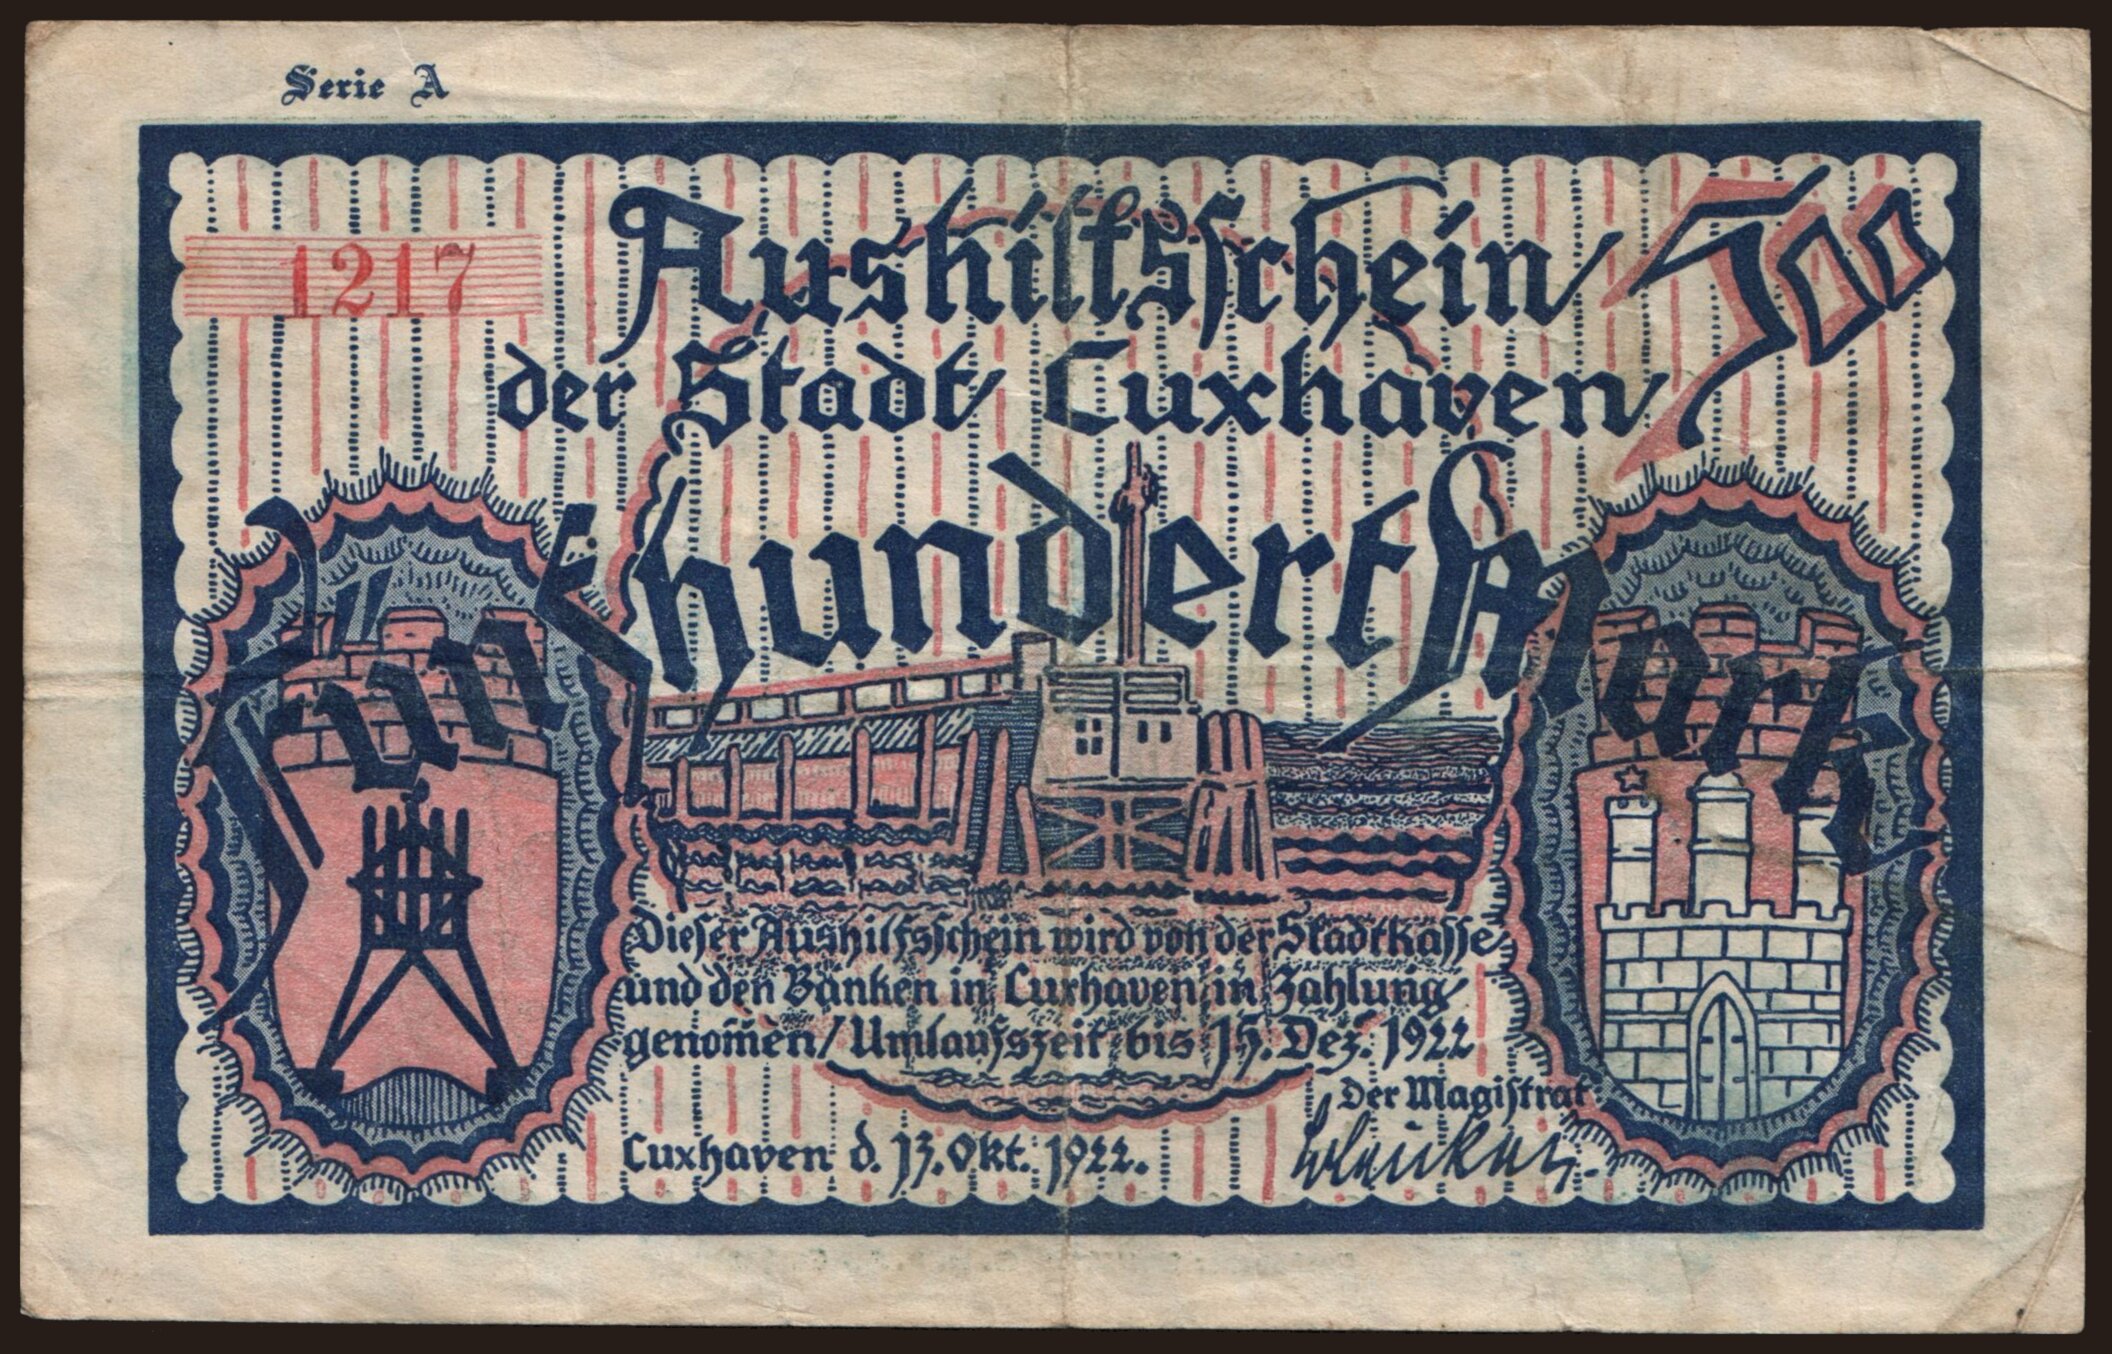 Serie A
1217
Aushilfsschein
500
der Stadt Cuxhaven
Fünfhundert Mark
Dieser Aushilfsschein wird von der Stadtkasse
und den Banken in Cuxhaven in Zahlung
genom̄en / Umlaufszeit bis 15. Dez. 1922
Der Magistrat
Cuxhaven d. 13. Okt. 1922.